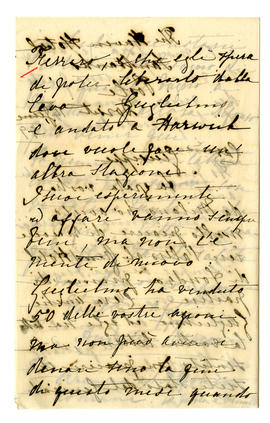 Ferrero, e che egli spera
di poter liberarlo dalla
leva. Guglielmo
è andato a Harwich
dove vuole fare un'
altra stazione.
I suoi esperimenti
ed affari vanno sempre
bene, ma non c'è
niente di nuovo
Guglielmo ha venduto
50 delle vostre azioni
ma non può avere i
denari sino la fine
di questo mese quando